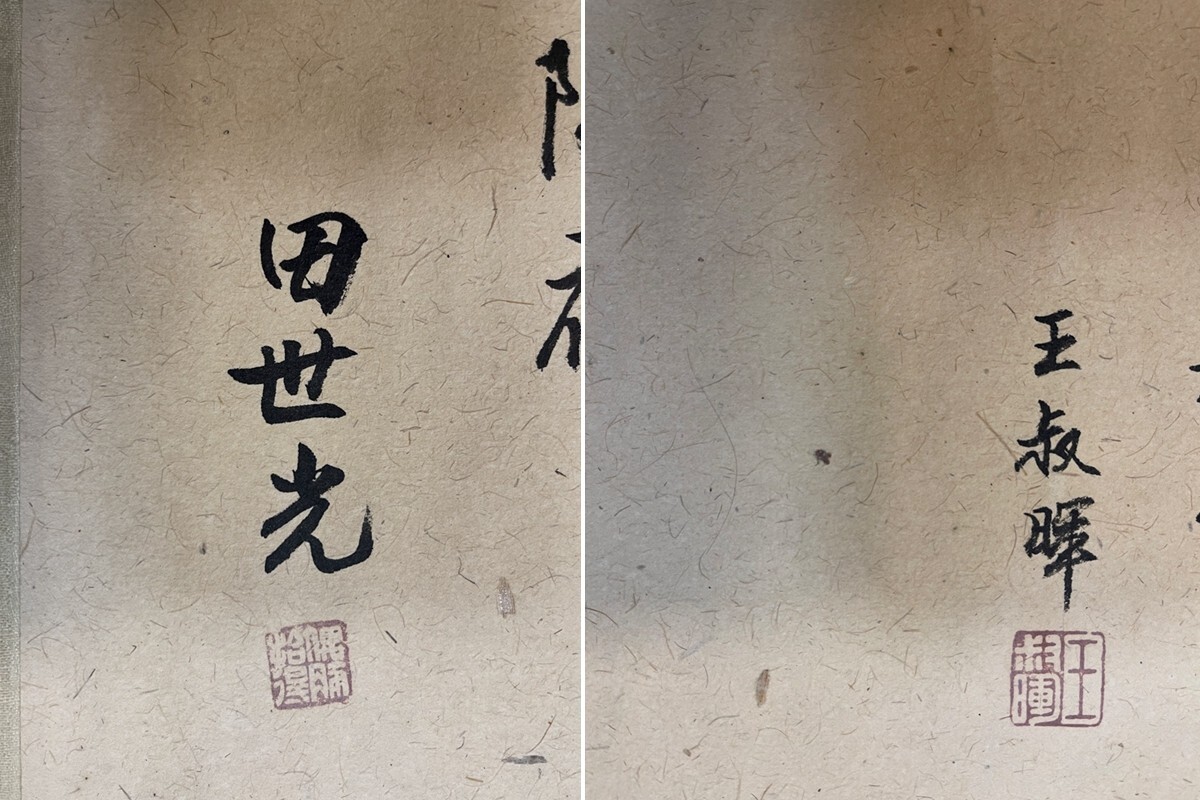 田世光
王叔暉
王叔暉